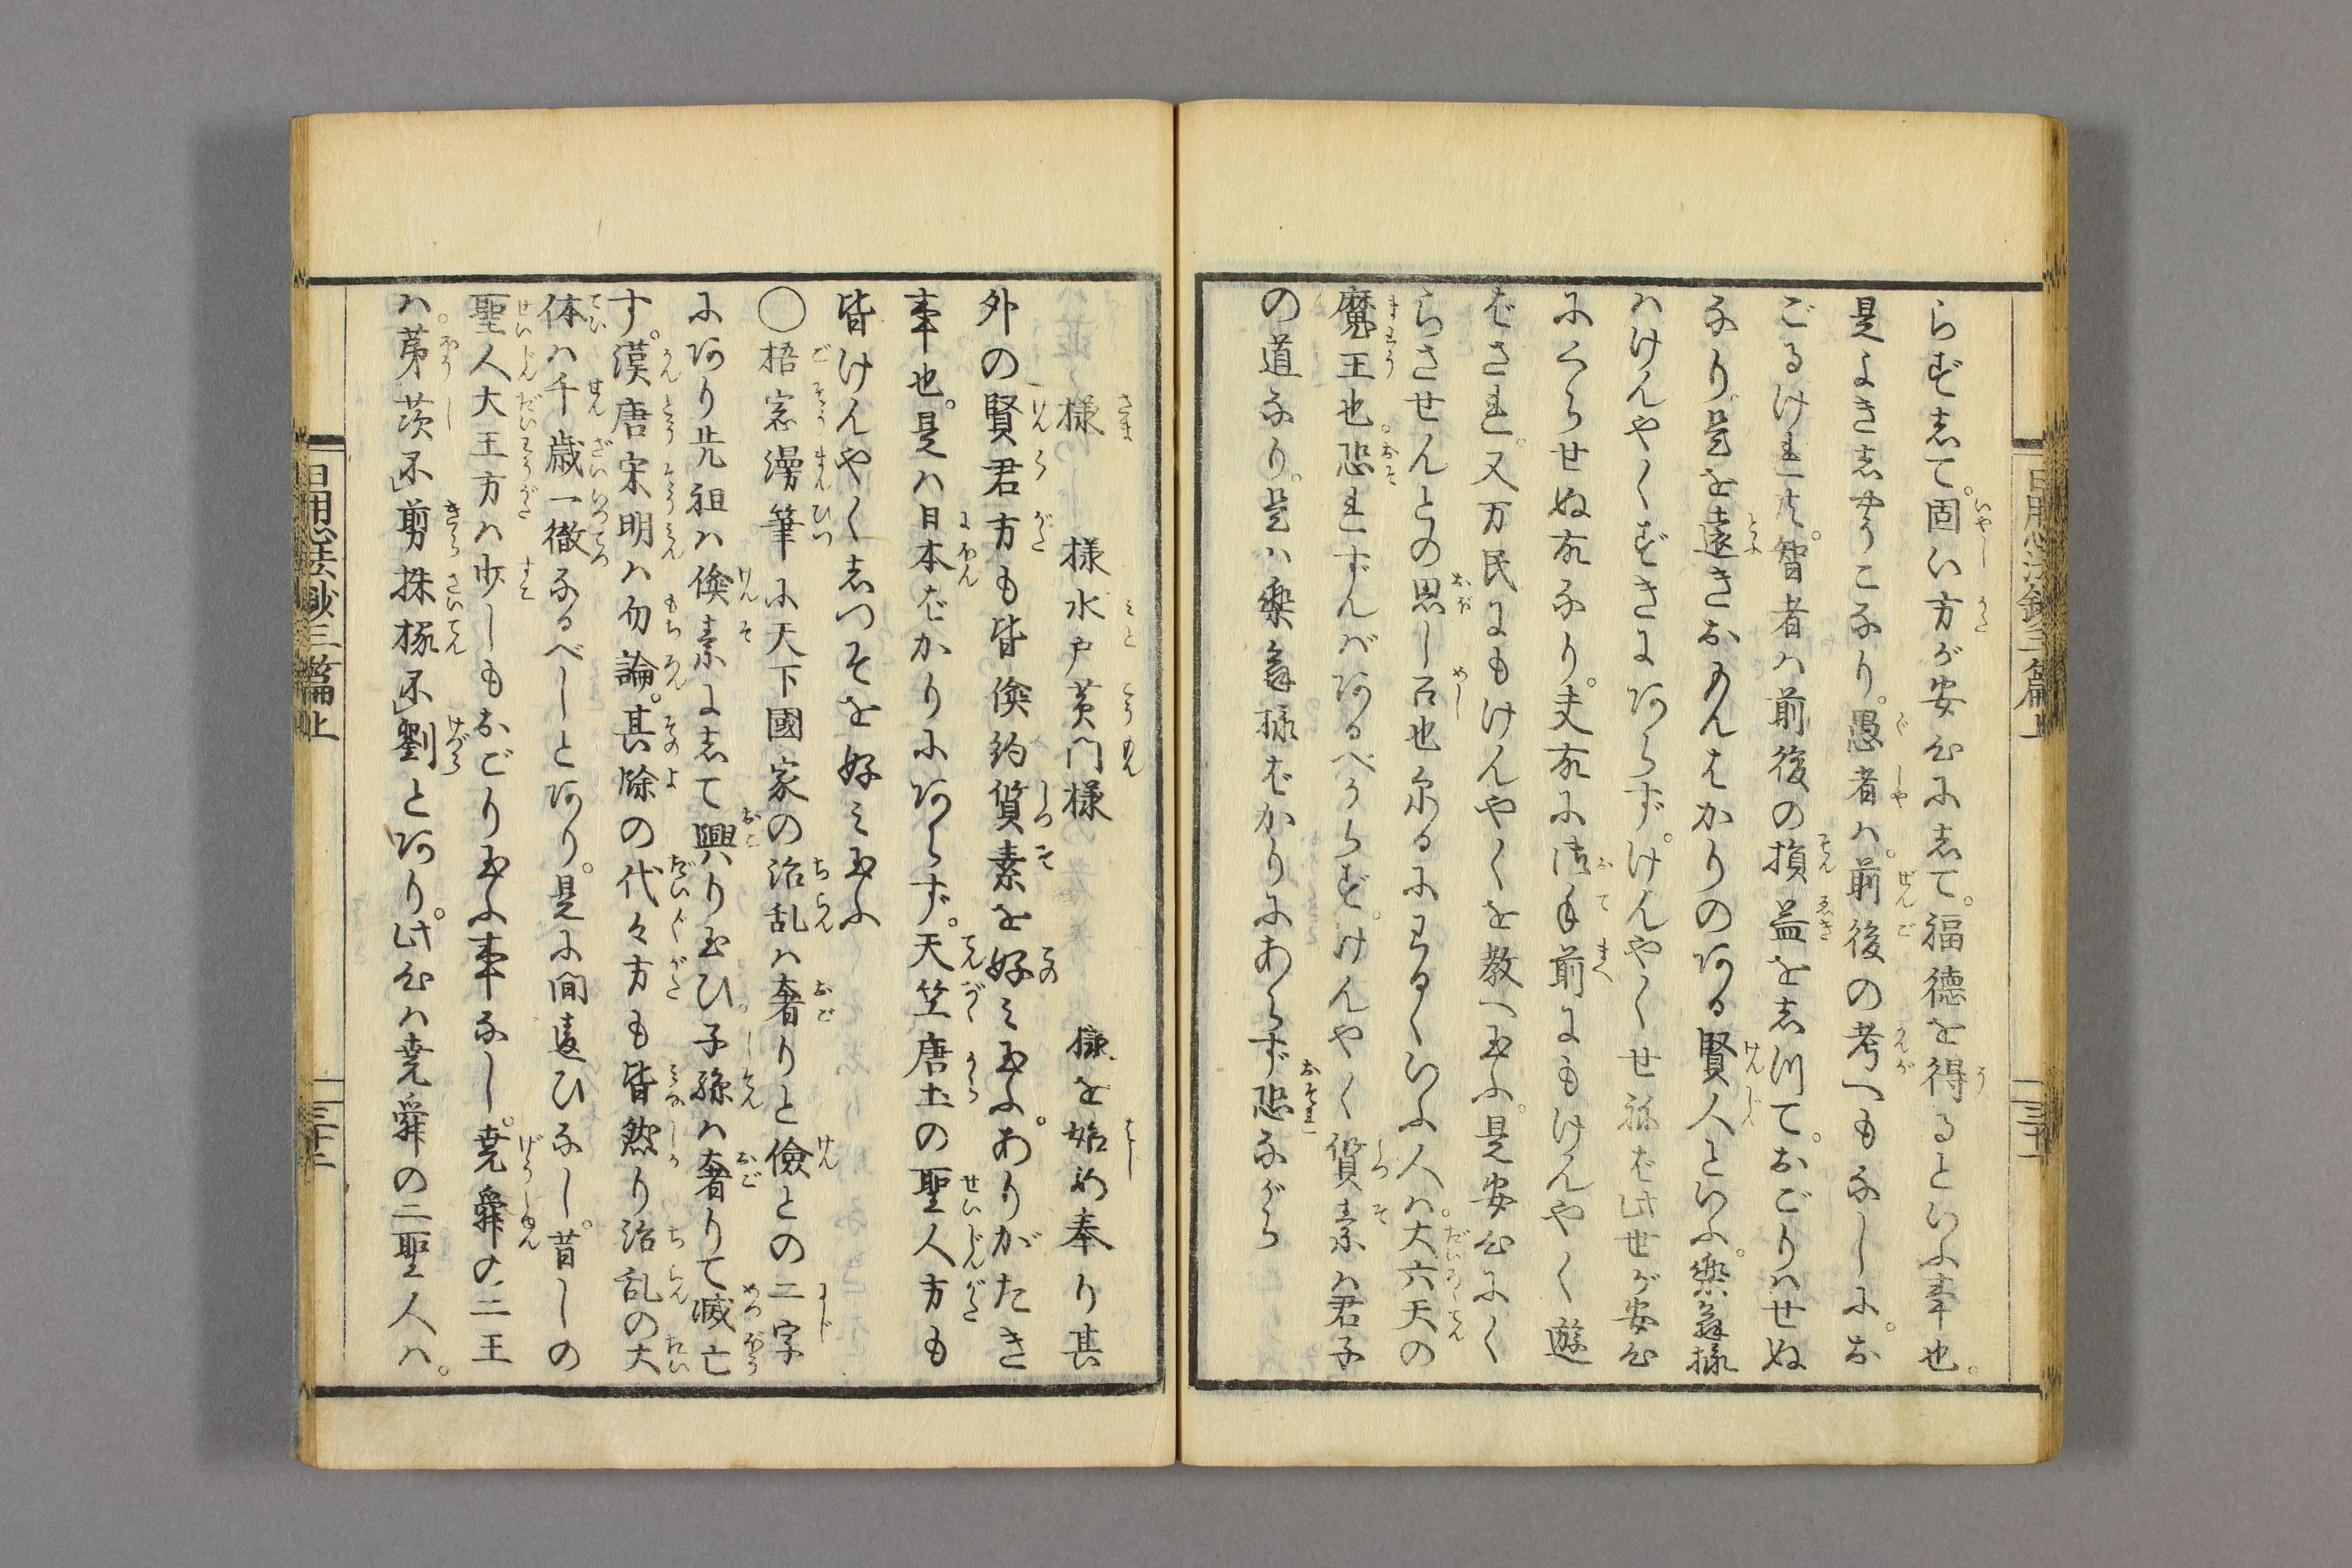 らず志て。固い方が安心に志て。福徳を得るといふ事也。
是よき志やうこなり。愚者ハ。前後の考へもなしに。お
ごるけれ共。智者ハ前後の損益を志つて。おごりハせぬ
なり。是を遠きおもんはかりのある賢人といふ。樂翁様
ハけんやくずきにあらず。けんやくせねば此世が安心
にくらせぬ故なり。夫故に御手前にもけんやく遊
ばされ。又万民にもけんやくを教へ玉ふ。是安心にく
らさせんとの思し召也尓るにわるくいふ人ハ。大六天の
魔王也。恐れずんバあるべからず。けんやく質素ハ君子
の道なり。是ハ樂翁様ばかりにあらず恐ながら
様　様水戸黄門様　様を始め奉り其
外の賢君方も皆倹約質素を好ミ玉ふ。ありがたき
事也。是ハ日本ばかりにあらず。天竺唐土の聖人方も
皆けんやく志つそを好ミ玉ふ
〇梧窓漫筆に天下國家の治乱ハ奢りと儉との二字
にあり先祖ハ倹素に志て興り玉ひ子孫ハ奢りて滅亡
す。漢唐宋明ハ勿論。其餘の代々方も皆然り治乱の大
体ハ千歳一徹なるべしとあり。是に間違ひなし。昔しの
聖人大王方ハ少しもおごり玉ふ事なし。堯舜の二王
ハ。茅茨不剪採椽不劉とあり。此心ハ堯舜の二聖人ハ。
日用心法鈔三篇上
三十二